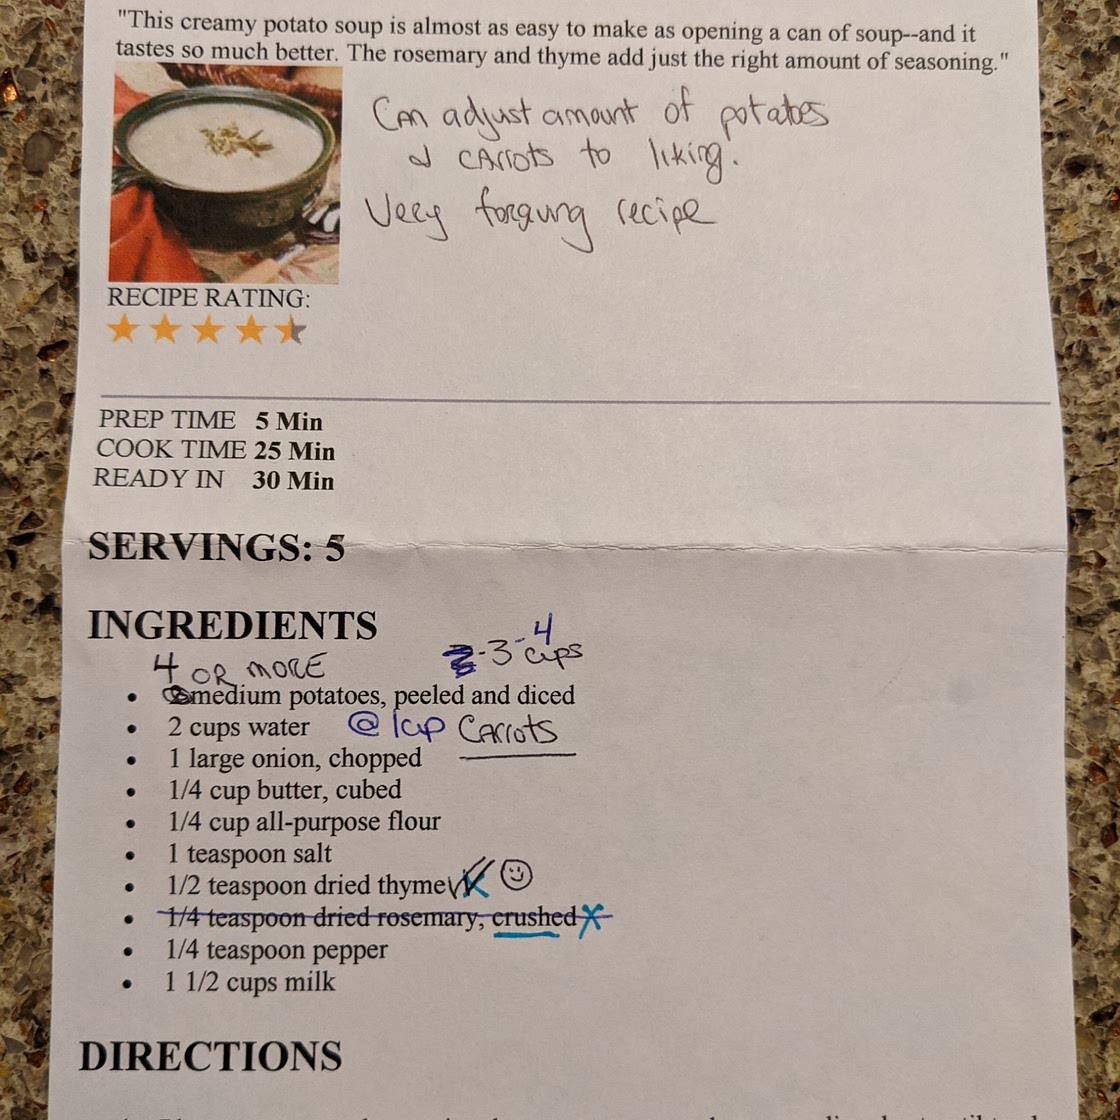 "This creamy potato soup is almost as easy to make as opening a can of soup--and it
tastes so much better. The rosemary and thyme add just the right amount of seasoning."
Can adjust amount of potatoes
& carrots to liking.
Very forgving recipe
RECIPE RATING:
PREP TIME 5 Min
COOK TIME 25 Min
READY IN 30 Min
SERVINGS: 5
INGREDIENTS
4 OR MORE
-3-4 cups
medium potatoes, peeled and diced
2 cups water @ 1cup Carrots
1 large onion, chopped
1/4 cup butter, cubed
1/4 cup all-purpose flour
1 teaspoon salt
1/2 teaspoon dried thyme
1/4 teaspoon dried rosemary, crushed
1/4 teaspoon pepper
1 1/2 cups milk
DIRECTIONS